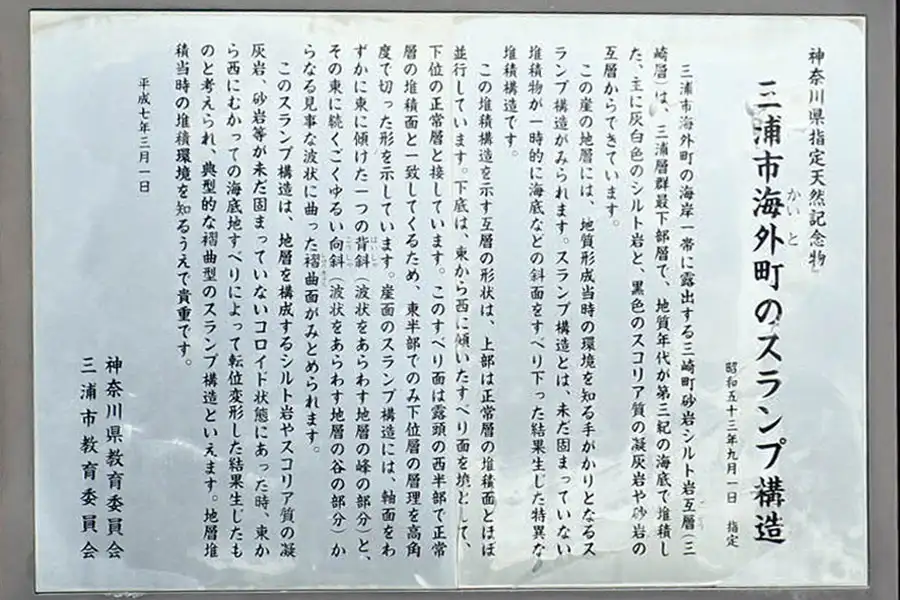 神奈川県指定天然記念物
三浦市海外町のスランプ構造
かいと
昭和五十三年九月一日 指定
三浦市海外町の海岸一帯に露出する三崎町砂岩シルト岩互層(三
崎層)は、三浦層群最下部層で、地質年代が第三紀の海底で堆積し
た、主に灰白色のシルト岩と、黒色のスコリア質の凝灰岩や砂岩の
互層からできています。
この崖の地層には、地質形成当時の環境を知る手がかりとなるス
ランプ構造がみられます。スランプ構造とは、未だ固まっていない
堆積物が一時的に海底などの斜面をすべり下った結果生じた特異な
堆積構造です。
この堆積構造を示す互層の形状は、上部は正常層の堆積面とほぼ
並行しています。下底は、東から西に傾いたすべり面を境として、
下位の正常層と接しています。このすべり面は露頭の西半部で正常
層の堆積面と一致してくるため、東半部でのみ下位層の層理を高角
度で切った形を示しています。崖面のスランプ構造には、軸面をわ
ずかに東に傾けた一つの背斜(波状をあらわす地層の峰の部分)と、
はいしゃ
その東に続くごくゆるい向斜(波状をあらわす地層の谷の部分)か
こうしゃ
らなる見事な波状に曲った褶曲面がみとめられます。
しゅうきょく
このスランプ構造は、地層を構成するシルト岩やスコリア質の凝
灰岩、砂岩等が未だ固まっていないコロイド状態にあった時、東か
ら西にむかっての海底地すべりによって転位変形した結果生じたも
のと考えられ、典型的な褶曲型のスランプ構造といえます。地層堆
積当時の堆積環境を知るうえで貴重です。
平成七年三月一日
神奈川県教育委員会
三浦市教育委員会